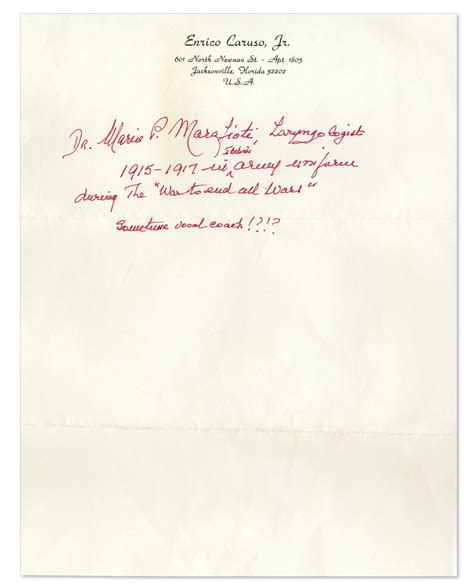 Enrico Caruso, Jr.
601 North Newnan St. - Apt. 1805
Jacksonville, Florida 32202
U.S.A.
Dr. Mario P. Marafioti, Laryngologist
Italian
1915-1917 in army uniform
during The "War to end all Wars"
Sometime vocal coach!?!?